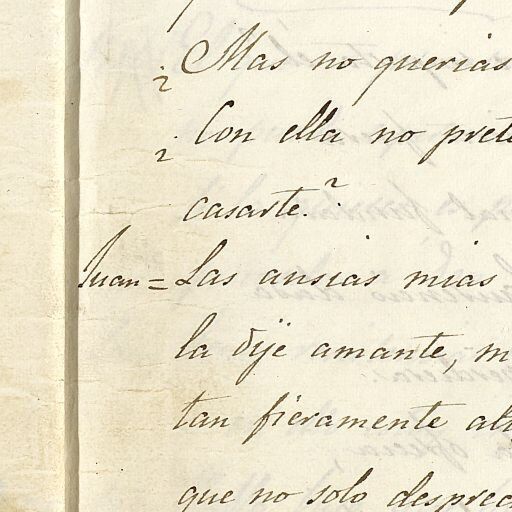 ¿ Mas no querias
¿ Con ella no prete
casarte.?
Juan = Las ansias mias
la dije amante, m
tan fieramente alt
que no solo despreci